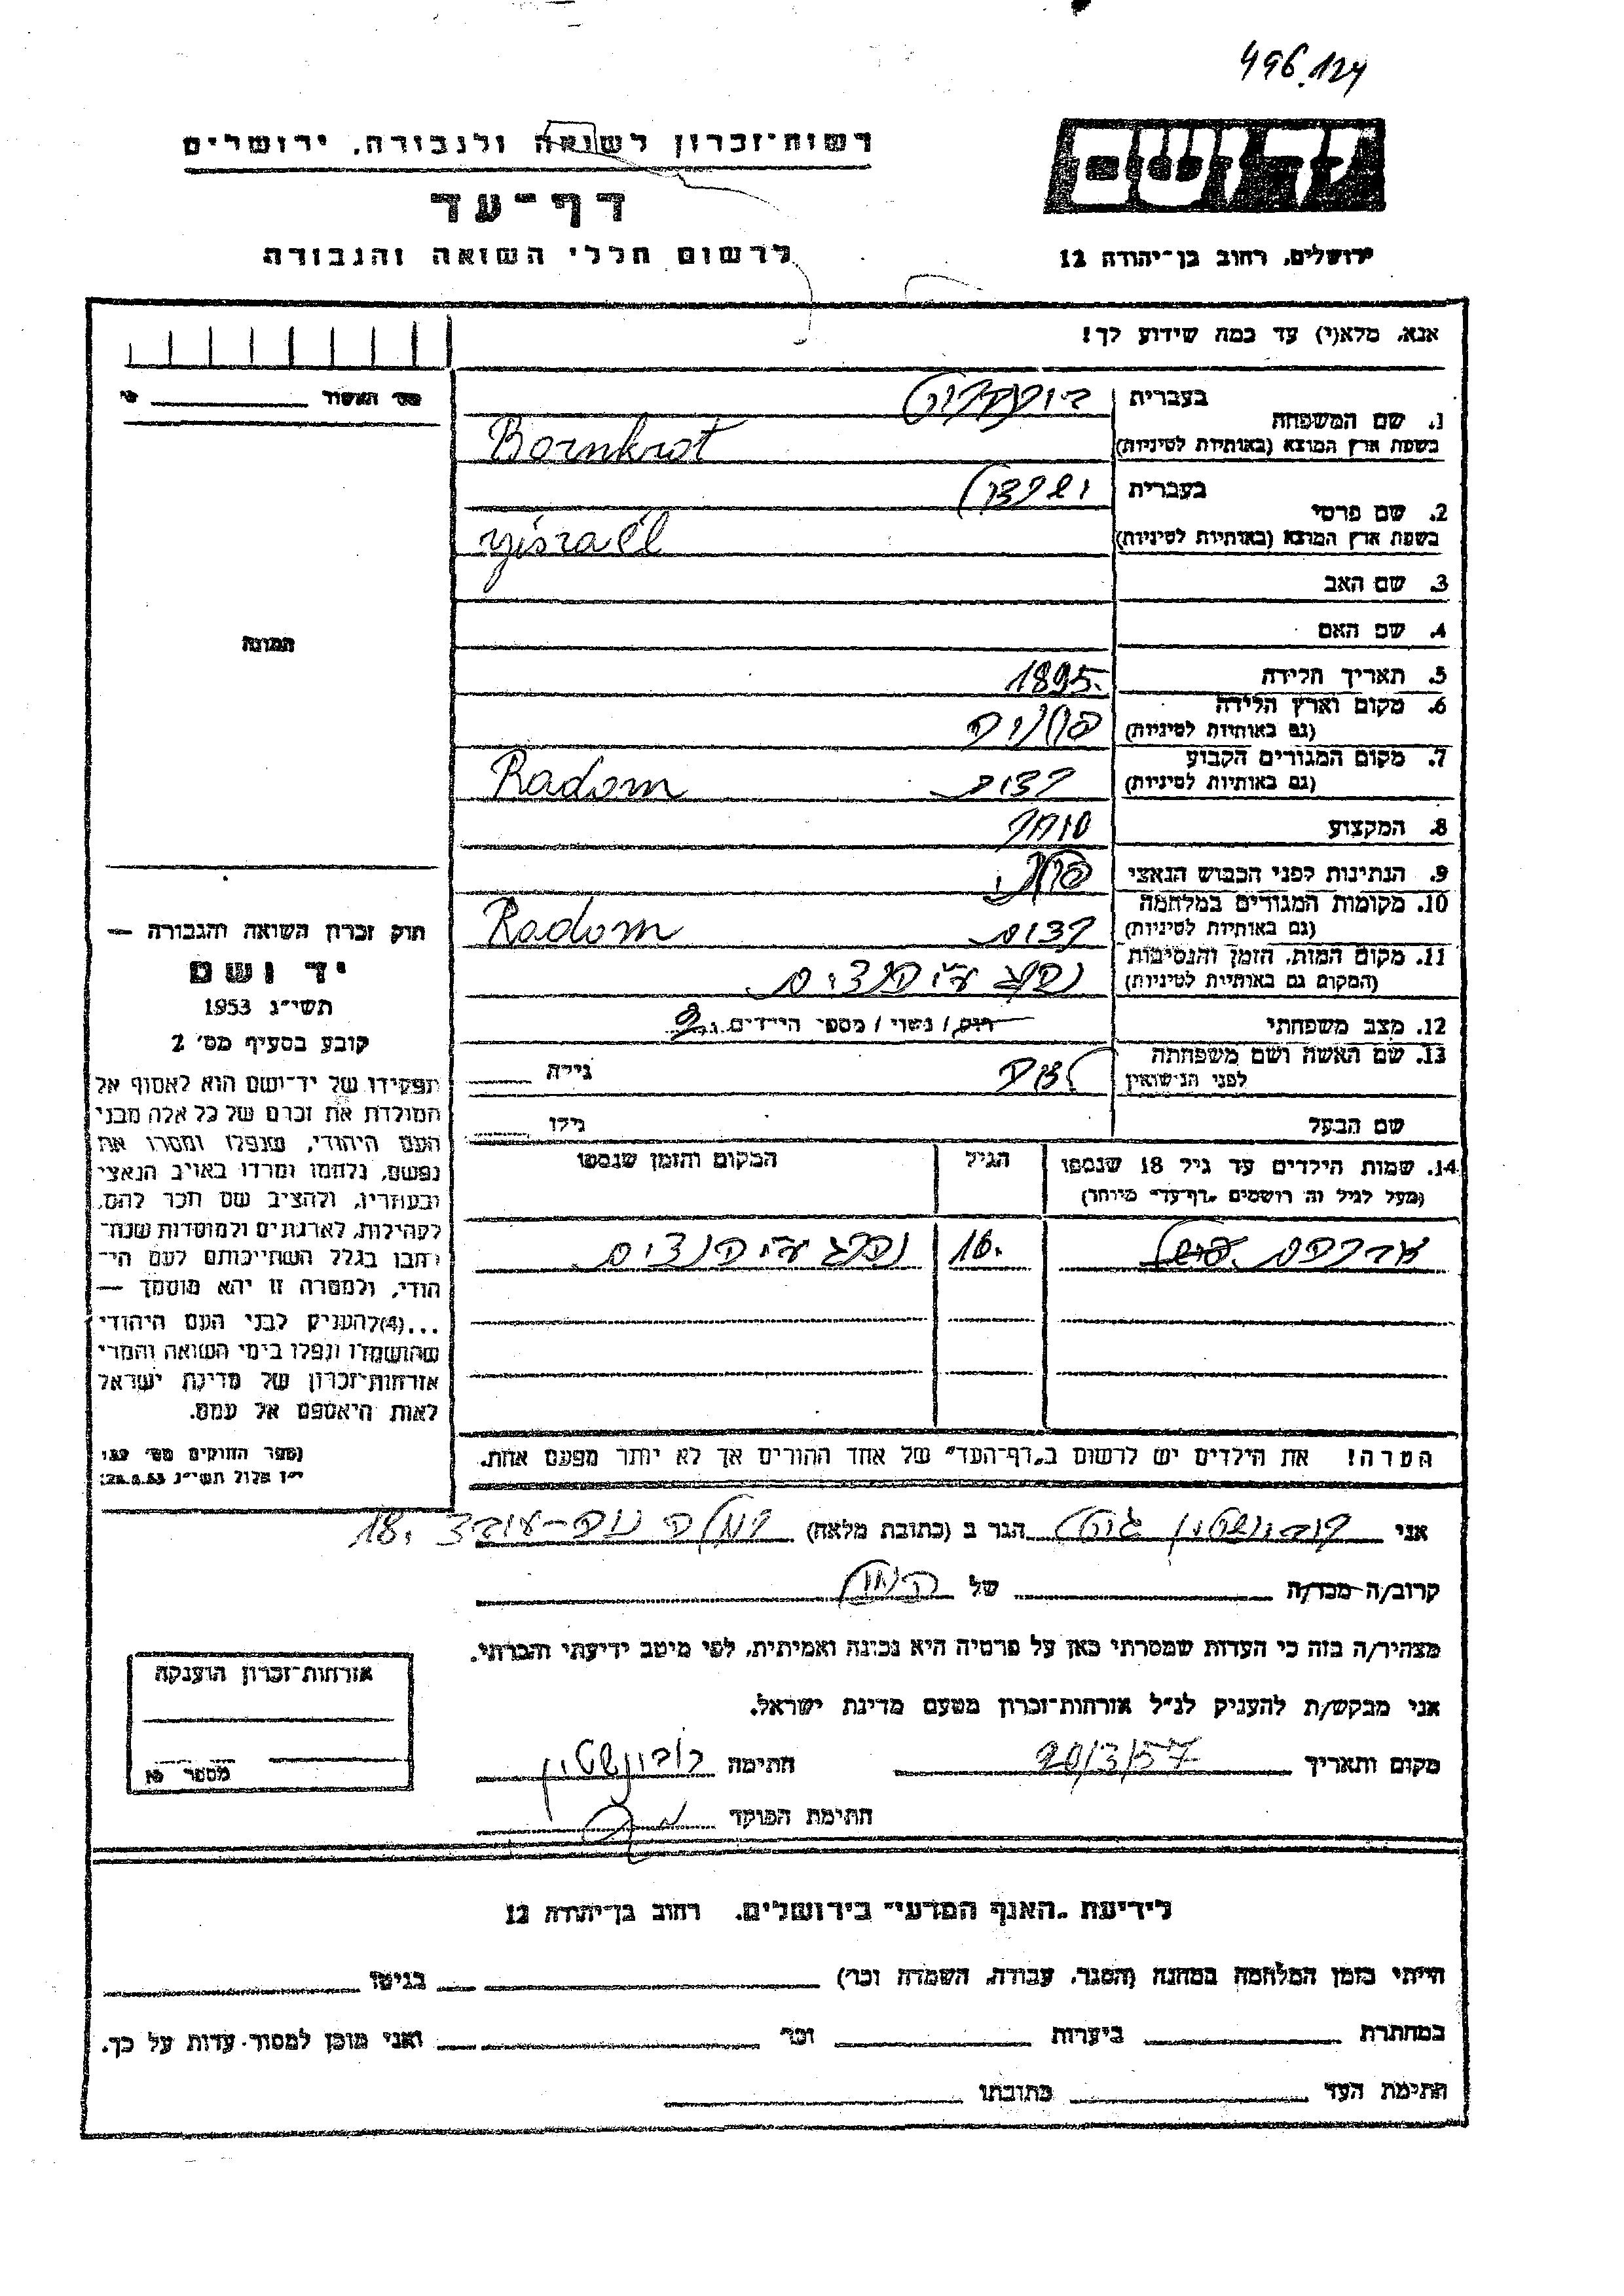 496.124
רשות־זכרון לשואה ולגבורה, ירושלים
דף־עד
לרשום חללי השואה והגבורה
ירושלים, רחוב בן־יהודה 12
אנא, מלא(י) עד כמה שידוע לך!
מס׳ האשור
1. שם המשפחה
בעברית
בשפת ארץ המוצא (באותיות לטיניות) Bornkrot
2. שם פרטי
בעברית ישראל
בשפת ארץ המוצא (באותיות לטיניות) yisraél
3. שם האב
4. שם האם
5. תאריך הלידה 1895.
6. מקום וארץ הלידה
(גם באותיות לטיניות)
7. מקום המגורים הקבוע
(גם באותיות לטיניות) רדום Radom
8. המקצוע סוחר
9. הנתינות לפני הכבוש הנאצי
10. מקומות המגורים במלחמה
(גם באותיות לטיניות) רדום Radom
11. מקום המות, הזמן והנסיבות
(המקום גם באותיות לטיניות) נהרג ע״י הנאצים.
12. מצב משפחתי רוק / נשוי / מספר הילדים
13. שם האשה ושם משפחתה
לפני הנישואין גילה
שם הבעל גילו
14. שמות הילדים עד גיל 18 שנספו
(מעל לגיל זה רושמים „דף־עד״ מיוחד)
הגיל
המקום והזמן שנספו
16.
נהרג ע״י הנאצים.
הערה! את הילדים יש לרשום ב„דף־העד״ של אחד ההורים אך לא יותר מפעם אחת.
תמונה
חוק זכרון השואה והגבורה —
יד ושם
תשי״ג 1953
קובע בסעיף מס׳ 2
תפקידו של יד־ושם הוא לאסוף אל
המולדת את זכרם של כל אלה מבני
העם היהודי, שנפלו ומסרו את
נפשם, נלחמו ומרדו באויב הנאצי
ובעוזריו, ולהציב שם וזכר להם,
לקהילות, לארגונים ולמוסדות שנח־
רבו בגלל השתייכותם לעם הי־
הודי, ולמטרה זו יהא מוסמך —
...(4) להעניק לבני העם היהודי
שהושמדו ונפלו בימי השואה והמרי
אזרחות־זכרון של מדינת ישראל
לאות היאספם אל עמם.
(ספר החוקים מס׳ 132
י״ז אלול תשי״ג 28.8.53)
אני רובינשטיין הגר ב (כתובת מלאה) 18.
קרוב/ה מכר/ה של
מצהיר/ה בזה כי העדות שמסרתי כאן על פרטיה היא נכונה ואמיתית, לפי מיטב ידיעתי והכרתי.
אני מבקש/ת להעניק לנ״ל אזרחות־זכרון מטעם מדינת ישראל.
מקום ותאריך 20/3/57 חתימה רובינשטיין
חתימת הפוקד
אזרחות־זכרון הוענקה
מספר
לידיעת „האגף המדעי״ בירושלים, רחוב בן־יהודה 12
הייתי בזמן המלחמה במחנה (הסגר, עבודה, השמדה וכו׳) בגיטו
במחתרת ביערות וכו׳ ואני מוכן למסור עדות על כך.
חתימת העד כתובתו